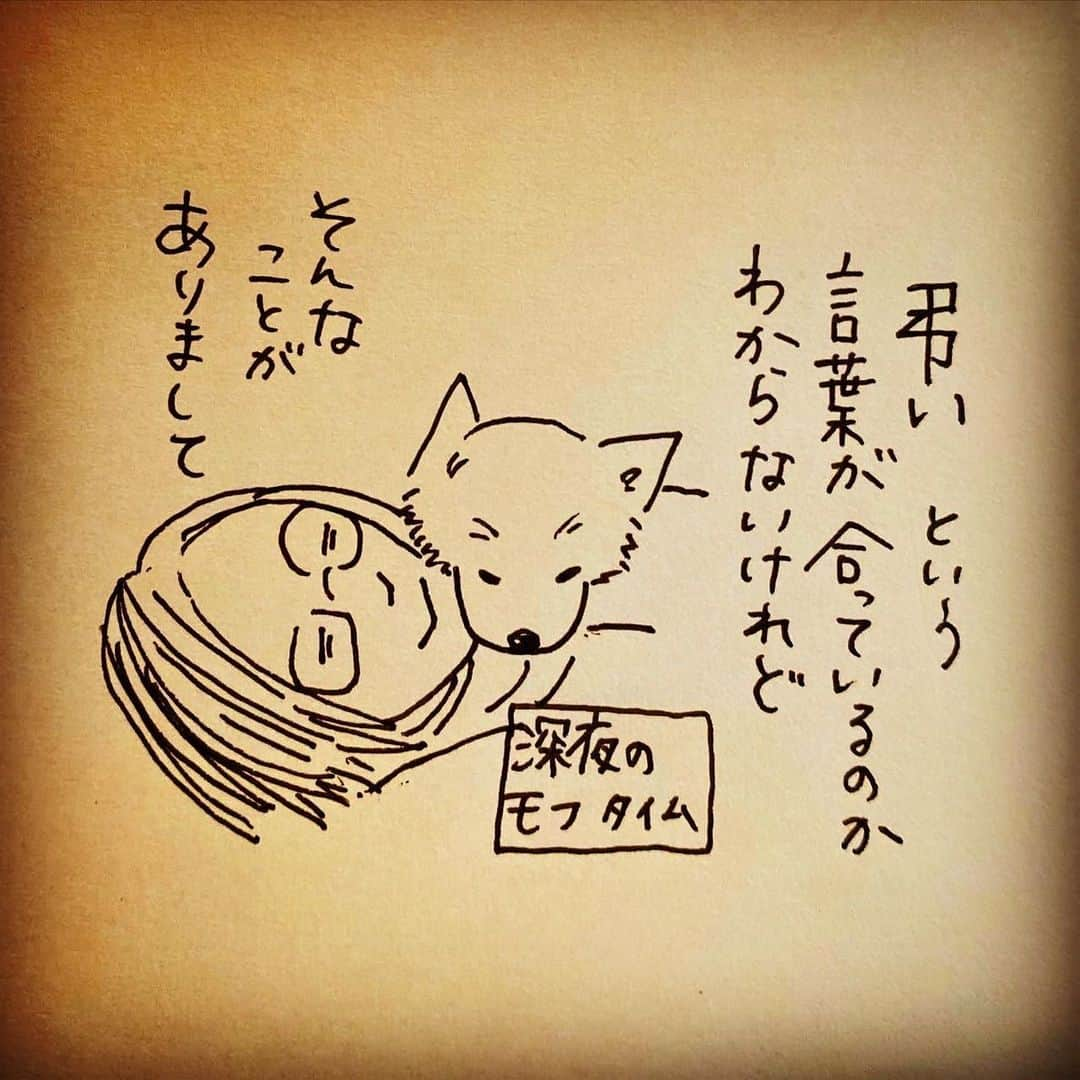 弔いという
言葉が合っているのか
わからないけれど
そんな
ことが
ありまして
深夜の
モフタイム